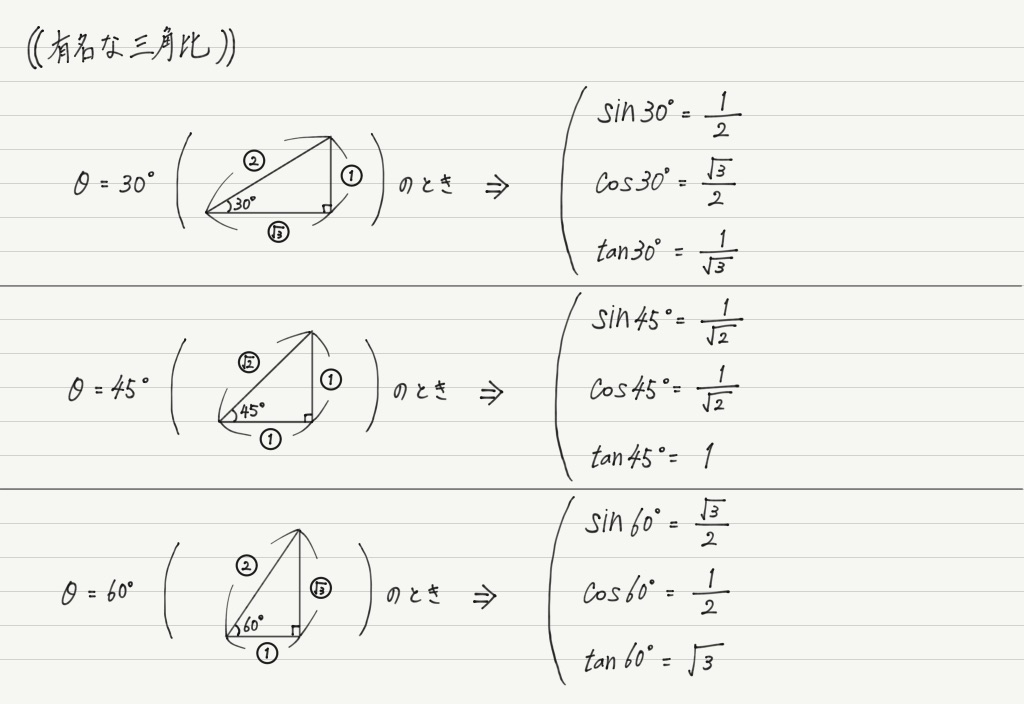 ((有名な三角比))
θ = 30° ( ② ① √3 30° ) のとき ⇒
sin30° = 1/2
cos30° = √3/2
tan30° = 1/√3
θ = 45° ( √2 ① ① 45° ) のとき ⇒
sin45° = 1/√2
cos45° = 1/√2
tan45° = 1
θ = 60° ( ② √3 ① 60° ) のとき ⇒
sin60° = √3/2
cos60° = 1/2
tan60° = √3